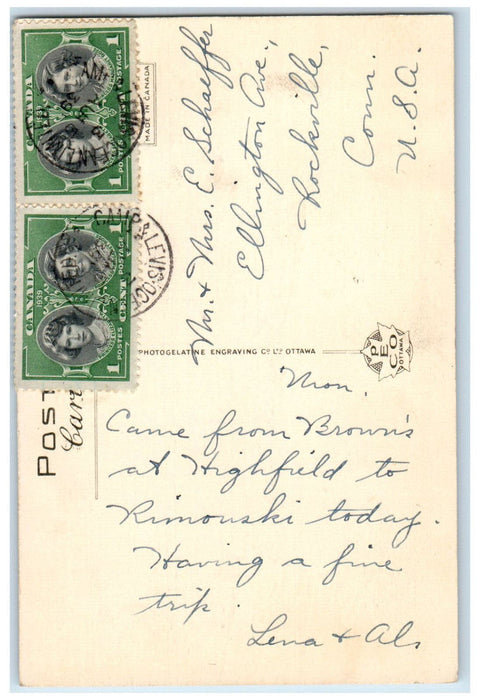 CANADA
1939
1 POSTES CENT POSTAGE 1
CANADA
1939
1 POSTES CENT POSTAGE 1
CAMP. & LEVIS
MADE IN CANADA
POST
Car
Mr. & Mrs. E. Schaeffer
Ellington Ave.,
Rockville,
Conn.
U.S.A.
PHOTOGELATINE ENGRAVING CO LTD OTTAWA
PECO
OTTAWA
Mon.
Came from Brown's
at Highfield to
Rimouski today.
Having a fine
trip.
Lena & Al.